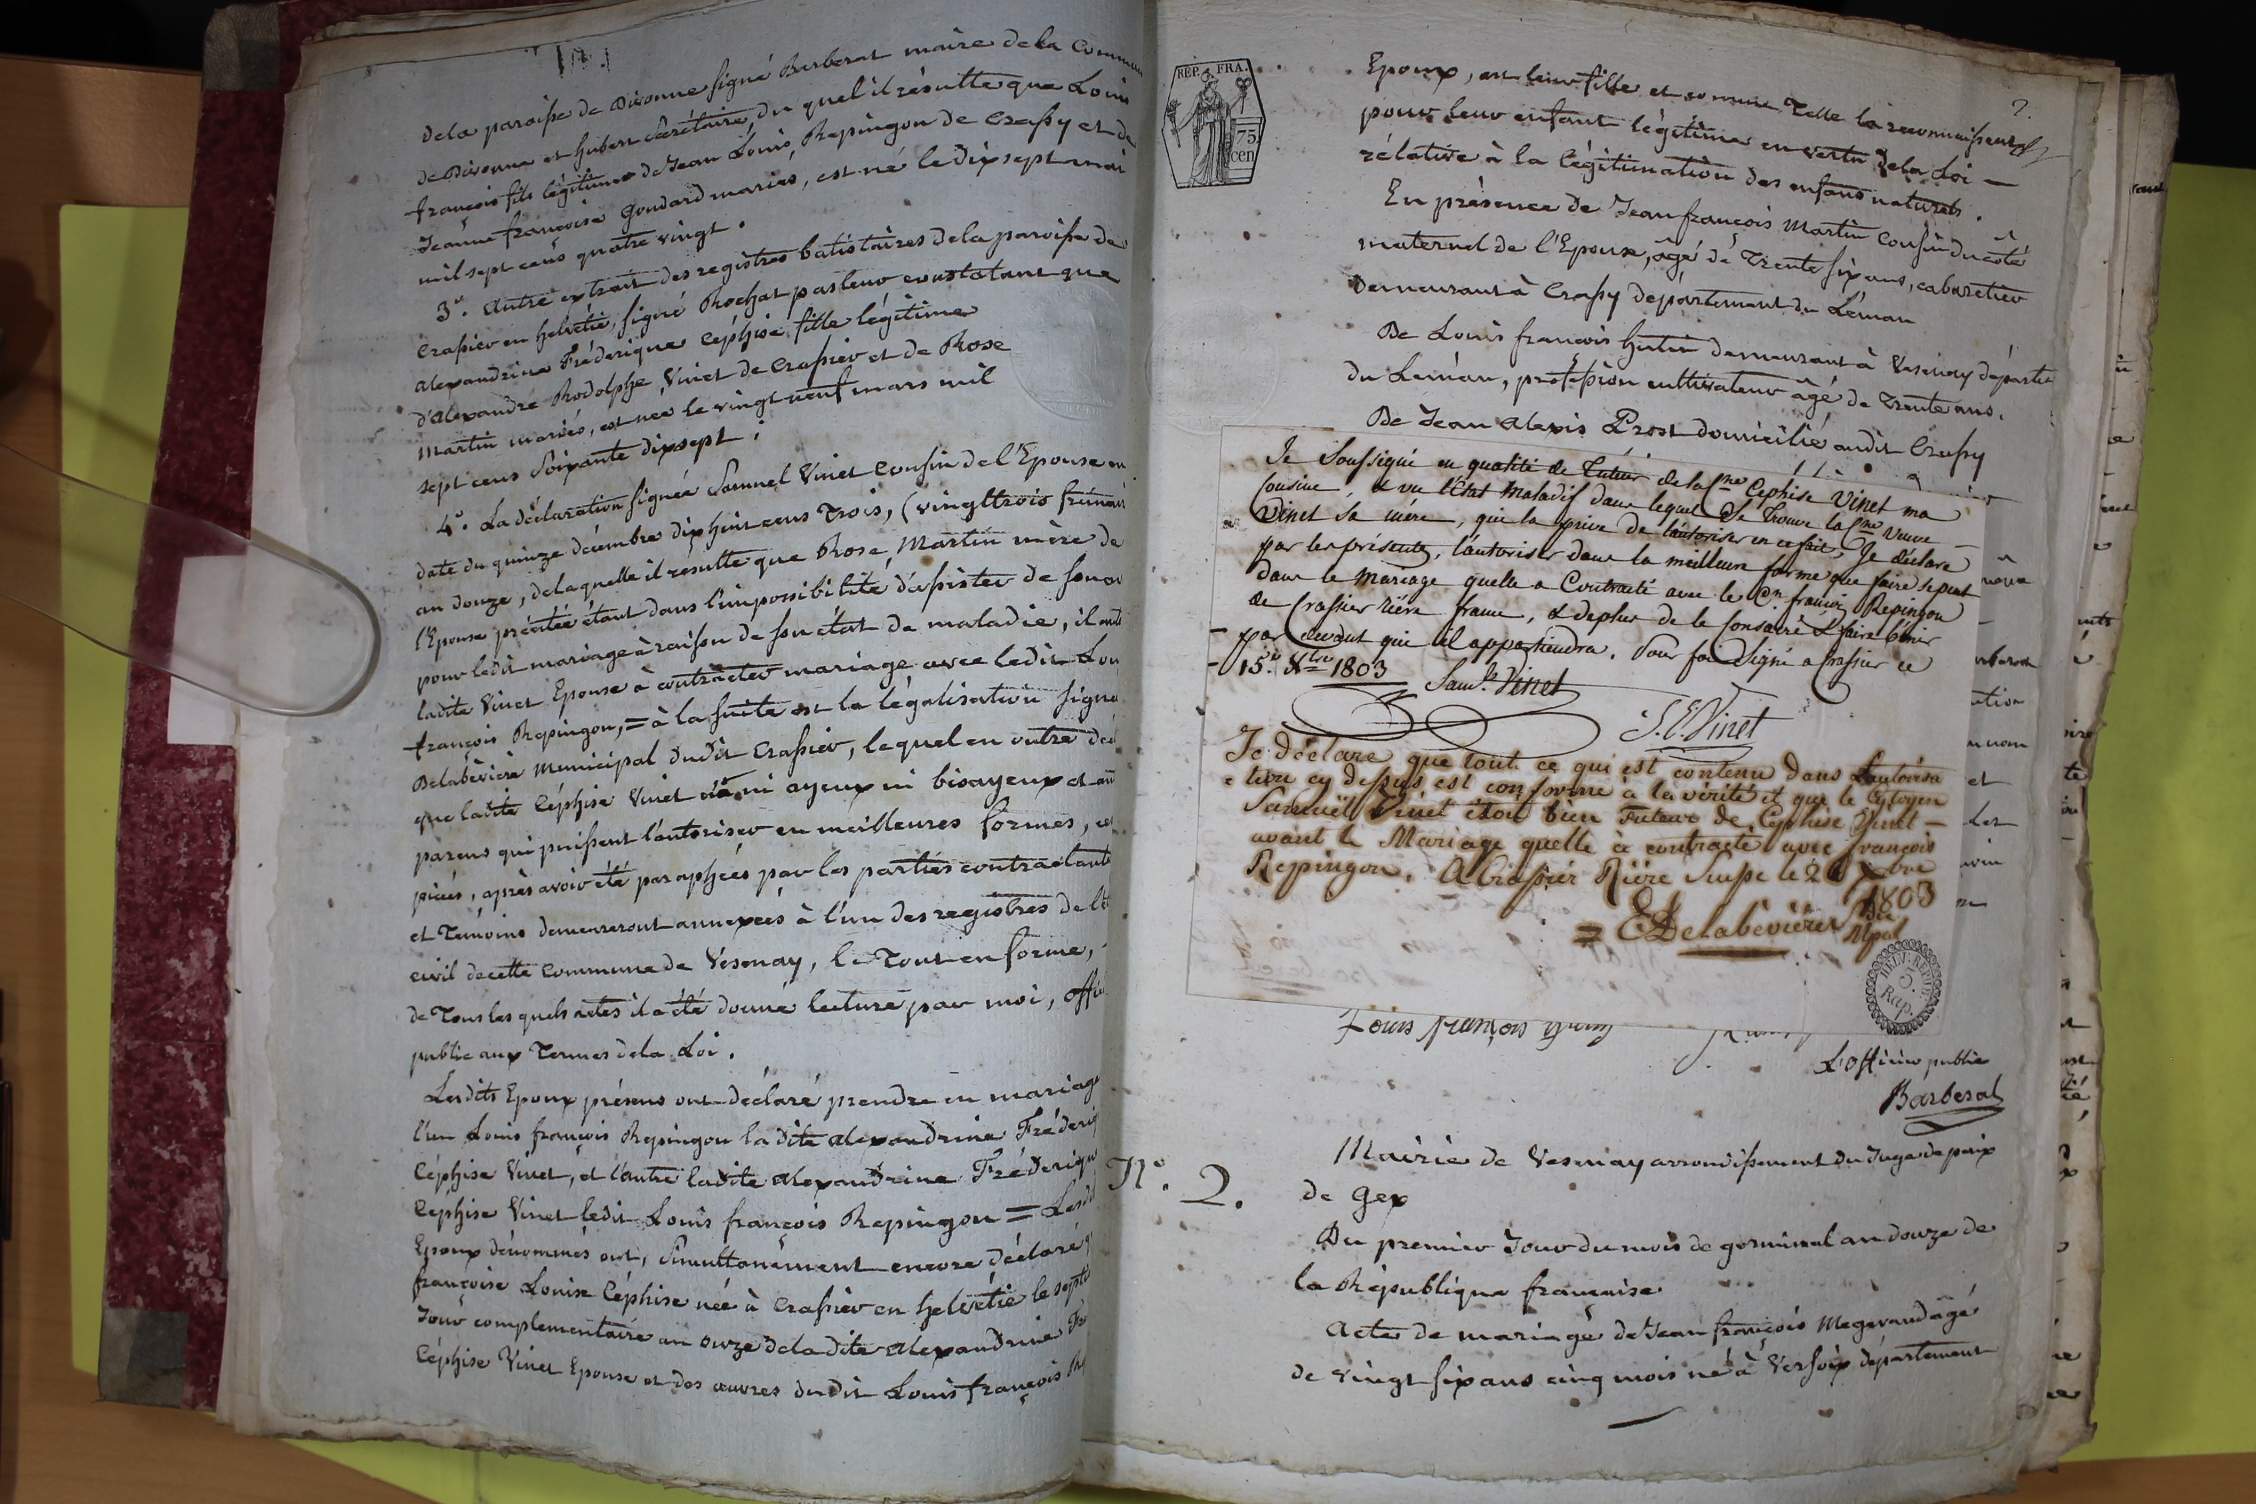 dela paroisse de Divonne signé Barberat maire dela Commun
de Divonne et hubert secrétaire, du quel il résulte que Louis
françois fils légitime de Jean Louis Repingon de Crassy et de
Jeanne françoise Goudard mariés, est né le dix sept mai
mil sept cens quatre vingt.
3°. autre extrait des registres batistaires dela paroisse de
Crassier en helvétie, signé Rochat pasteur constatant que
alexandrine Fréderique Céphise fille légitime
d'alexandre Rodolphe Vinet de Crassier et de Rose
Martin mariés, est née le vingt neuf mars mil
sept cens soixante dix sept ;
4°. La déclaration signée Samuel Vinet Cousin de l'Epouse en
date du quinze décembre dix huit cens trois, (vingt trois frimair
an douze, de laquelle il resulte que Rose Martin mère de
l'Epouse précitée étant dans l'impossibilité d'assister de
pour ledit mariage à raison de son état de maladie, il auto
ladite Vinet Epouse à contracter mariage avec ledit Lou
françois Repingon, = à la suite est la légalisation signé
Delabévière Municipal dudit Crassier, lequel en outre déc
que ladite Céphise Vinet n'a ni ayeux ni bisayeux et
parens qui puissent l'autoriser en meilleures formes,
pièces, après avoir été paraphées par les parties contractante
et Témoins demeureront annexées à l'un des registres de l'ét
civil de cette Commune de Vesenay, le Tout en forme,
de Tous les quels actes il a été donné lecture par moi, offic
public aux Termes dela Loi.
Lesdits Epoux présens ont déclaré prendre en mariage
l'un Louis françois Repingon ladite alexandrine Fréderiq
Céphise Vinet, et l'autre ladite alexandrine Fréderique
Cephise Vinet ledit Louis françois Repingon = Lesdit
Epoux dénommés ont, simultanément encore déclaré q
françoise Louise Céphise née à Crassier en helvétie le sept
Jour complementaire an onze de ladite alexandrine Fré
Céphise Vinet Epouse et des œuvres dudit Louis françois Re
REP. FRA.
75
cen
2.
Epoux, est leur fille et comme Telle la reconnaissent
pour leur enfant légitime en vertu dela Loi —
rélative à la légitimation des enfans naturels.
En présence de Jean françois Martin Cousin du côté
maternel de l'Epouse, âgé de Trente six ans, cabaretier
demeurant à Crassy département du Léman
De Louis françois hutin demeurant à Vesenay départe
du Léman, profession cultivateur âgé de Trente ans.
De Jean alexis Prost domicilié audit Crassy
Je Soussigné en qualité de Tuteur de la Cne Cephise Vinet ma
Cousine, & vu l'Etat Maladif dans lequel Se Trouve la Cne Veuve
Vinet Sa mère, qui la prive de l'autoriser en ce fait, Je déclare
par les présentes, l'autoriser dans la meilleure forme que faire se peut
dans le Mariage quelle a Contracté avec le Cn. françois Repingon
de Crassier rière france, & deplus de le Consacrer & faire bénir
par devant qui il appartiendra. Pour foi Signé a Crassier ce
15e Xbre 1803
Saml. Vinet
S.E. Vinet
Je déclare que tout ce qui est contenu dans Lautorisa
tion cy dessus est conforme à la vérité et que le Cytoyen
Samuël Vinet étoit bien Tuteur de Cephise Vinet —
avant le Mariage quelle à contracté avec françois
Repingon. A Crassier Rière Suisse le 2 Xbre
1803
= E Delabévière
Mpal
HELV. REPUB.
5.
Rap.
Louis françois
L'officier public
Barberat
N°. 2.
Mairie de Vesenay arrondissement du Juge de paix
de Gex
Du premier Jour du mois de germinal an douze de
la République française
Acte de mariage de Jean françois Megevand âgé
de vingt six ans cinq mois né à Versoix département